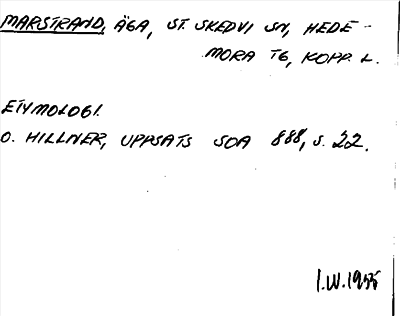 MARSTRAND, ÄGA, ST. SKEDVI SN, HEDE-
MORA TG, KOPP. L.
ETYMOLOGI.
O. HILLNER, UPPSATS SOA 888, S. 22.
I.W.1955